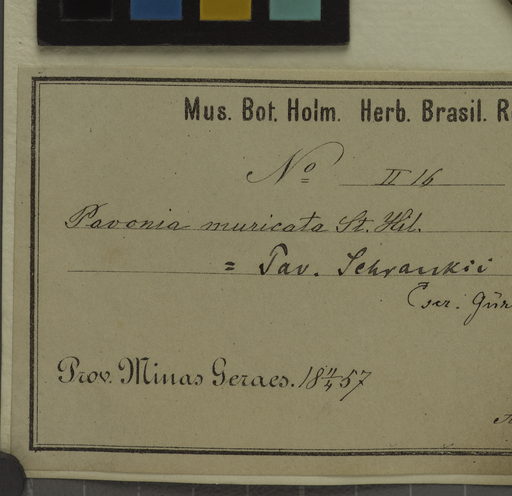 Mus. Bot. Holm. Herb. Brasil. R
No II 16
Pavonia muricata St. Hil.
= Pav. Schrankii
scr. Gür
Prov. Minas Geraes. 18 4/4 57